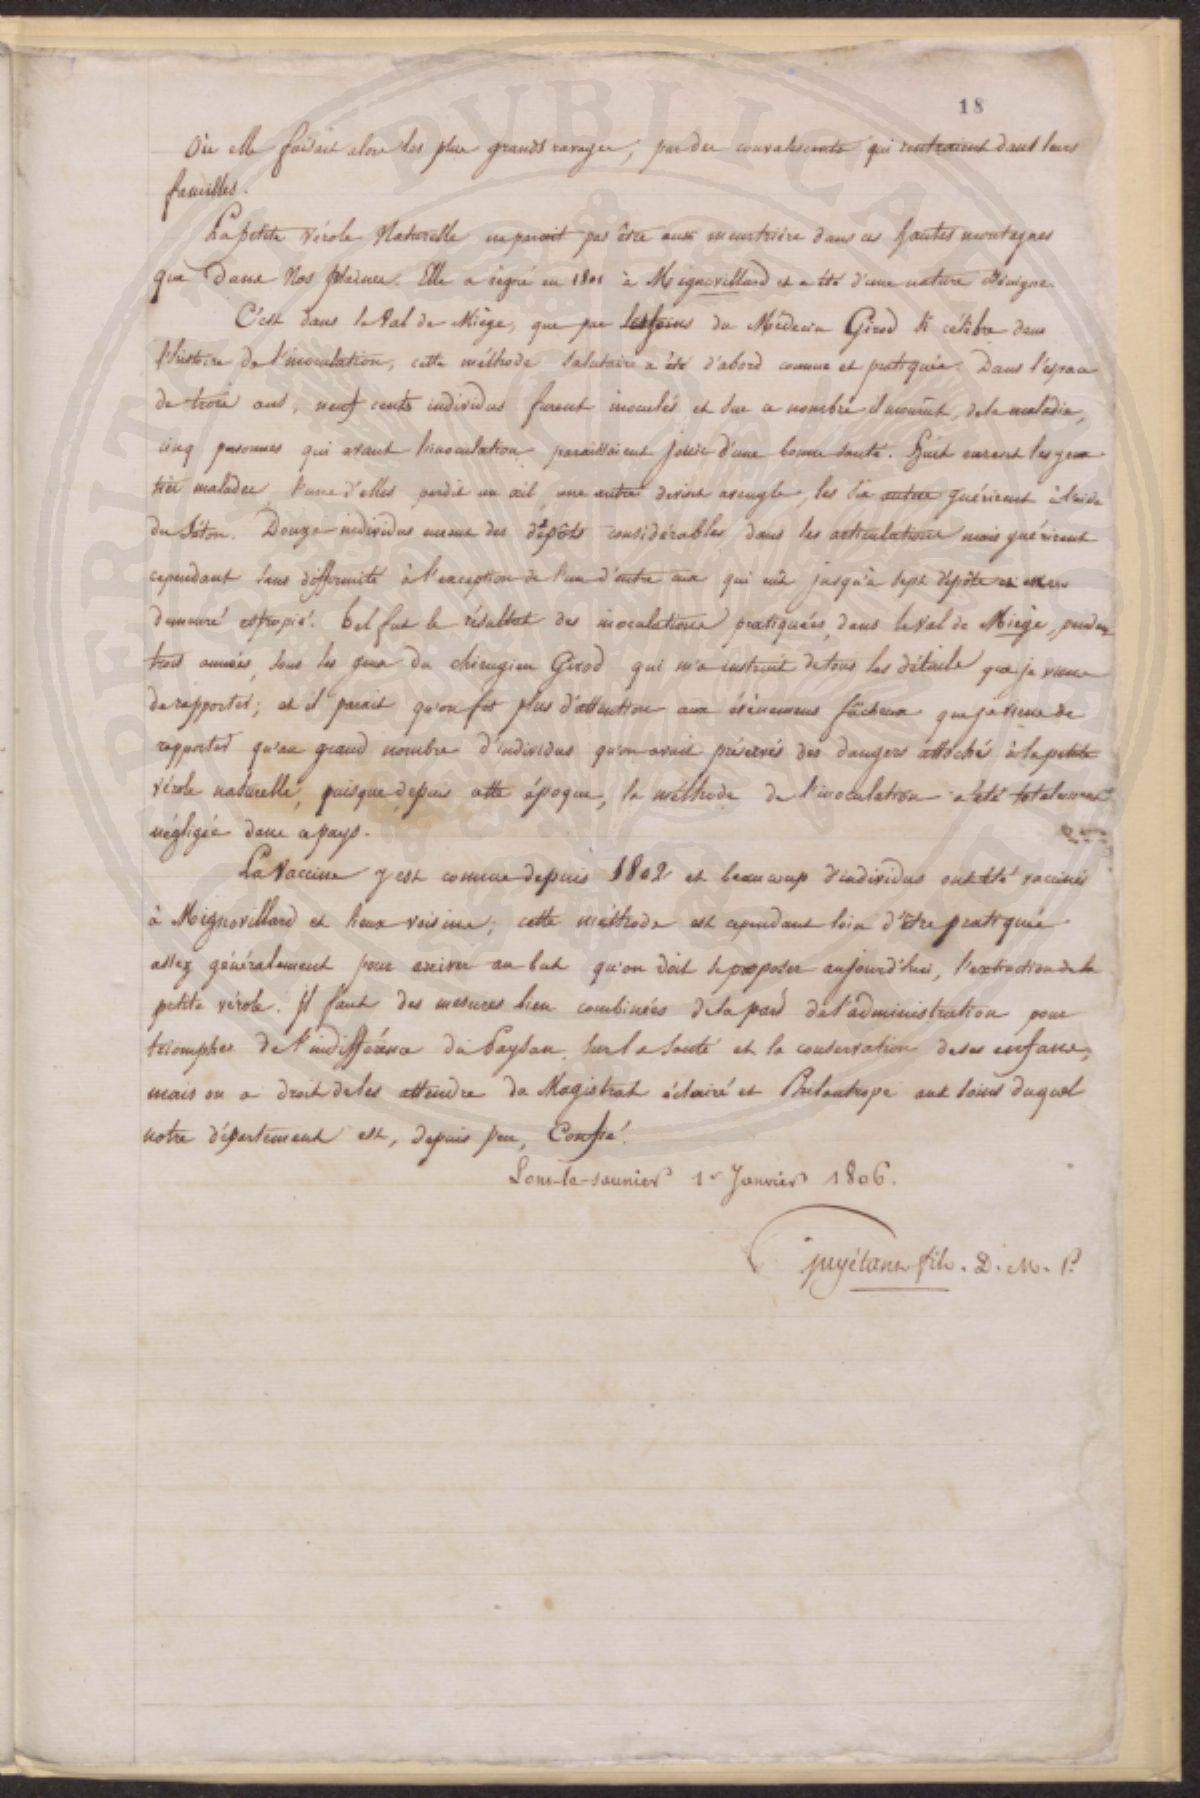 18
Où elle faisait alors les plus grands ravages, par des convalescents qui rentraient dans leurs
familles.
La petite vérole Naturelle ne parait pas être aussi meurtrière dans ces hautes montagnes
que dans Nos plaines. Elle a régné en 1801 à Mignovillard et a été d'une nature Bénigne.
C'est dans le Val de Miège, que par les soins du Médecin Girod si célèbre dans
l'histoire de l'inoculation, cette méthode salutaire a été d'abord connue et pratiquée. Dans l'espace
de trois ans, neuf cents individus furent inoculés et sur ce nombre il mourut, de la maladie,
cinq personnes qui avant l'inoculation paraissaient jouir d'une bonne santé. Huit eurent les yeux
très malades, l'une d'elles perdit un œil, une autre devint aveugle, les six autres guérirent à l'aide
du Séton. Douze individus eurent des dépôts considérables dans les articulations mais guérirent
cependant sans difformité à l'exception de l'un d'entre eux qui eut jusqu'à sept dépôts et en
demeuré estropié. Tel fut le résultat des inoculations pratiquées, dans le Val de Miège, pendant
trois années, sous les yeux du chirurgien Girod qui m'a instruit de tous les détails que je viens
de rapporter; et il parait qu'on fit plus d'attention aux événemens fâcheux que je viens de
rapporter qu'au grand nombre d'individus qu'on avait préservés des dangers attachés à la petite
vérole naturelle, puisque depuis cette époque, la méthode de l'inoculation a été totalement
négligée dans ce pays.
La Vaccine y est connue depuis 1802 et beaucoup d'individus ont été vaccinés
à Mignovillard et lieux voisins; cette méthode est cependant loin d'être pratiquée
assez généralement pour arriver au but qu'on doit se proposer aujourd'hui, l'extinction de la
petite vérole. Il faut des mesures bien combinées de la part de l'administration pour
triompher de l'indifférence du Paysan sur la santé et la conservation de ses enfans,
mais on a droit de les attendre du Magistrat éclairé et Philantrope aux soins duquel
notre département est, depuis peu, Confié.
Lons-le-saunier 1er Janvier 1806.
Guyétant fils. D. M. P.